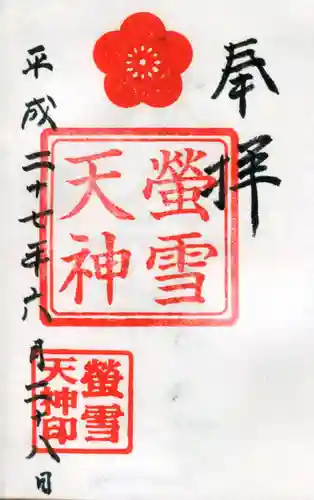 奉拝
螢雪
天神
螢雪
天神印
平成二十七年六月二十八日